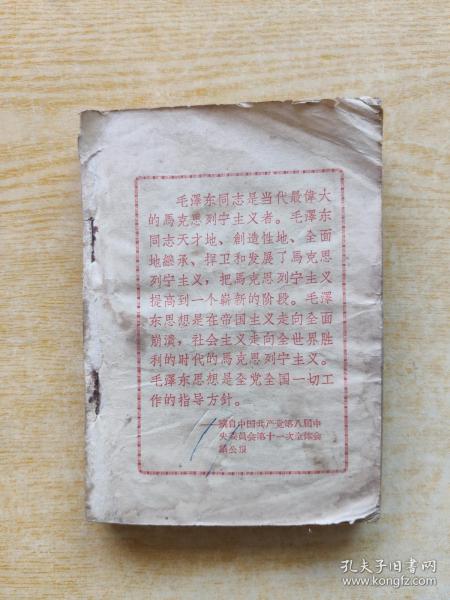 毛澤东同志是当代最偉大
的馬克思列宁主义者。毛澤东
同志天才地、創造性地、全面
地継承、捍卫和发展了馬克思
列宁主义，把馬克思列宁主义
提高到一个嶄新的阶段。毛澤
东思想是在帝国主义走向全面
崩潰，社会主义走向全世界胜
利的时代的馬克思列宁主义。
毛澤东思想是全党全国一切工
作的指导方針。
——摘自中国共产党第八届中
央委員会第十一次全体会
議公报
孔夫子旧书网
www.kongfz.com